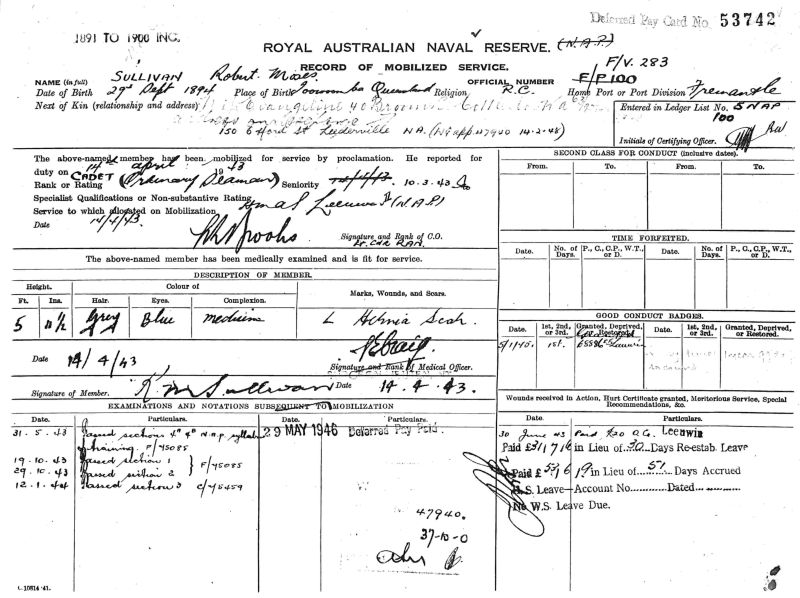 Deferred Pay Card No. 53742
1891 TO 1900 INC.
ROYAL AUSTRALIAN NAVAL RESERVE. (N.A.P.)
RECORD OF MOBILIZED SERVICE. F/V. 283
NAME (in full) SULLIVAN Robert Moses OFFICIAL NUMBER F/P100
Date of Birth 29th Sept 1894 Place of Birth Toowoomba Queensland Religion R.C. Home Port or Port Division Fremantle
Next of Kin (relationship and address) Evangeline
150 Oxford St Leederville W.A. (NS app 47900 14-2-48)
Entered in Ledger List No. 5 NAP
100
Initials of Certifying Officer.
The above-named member has been mobilized for service by proclamation. He reported for
duty on 14th April 1943
Rank or Rating CADET (Ordinary Seaman) Seniority 14/4/43. 10.3.43
Specialist Qualifications or Non-substantive Rating
Service to which allocated on Mobilization HMAS Leeuwin (NAP)
Date 14/4/43.
Signature and Rank of C.O.
Lt. Cdr RAN.
The above-named member has been medically examined and is fit for service.
DESCRIPTION OF MEMBER.
Height. Colour of Marks, Wounds, and Scars.
Ft. Ins. Hair. Eyes. Complexion.
5 11½ Grey Blue medium L Hernia Scar.
Date 14/4/43 Signature and Rank of Medical Officer.
Signature of Member. R M Sullivan Date 14.4.43.
EXAMINATIONS AND NOTATIONS SUBSEQUENT TO MOBILIZATION
Date. Particulars. Date. Particulars.
31.5.43 Passed sections N.A.P. syllabus
training. F/45085
29 MAY 1946 Deferred Pay Paid.
19.10.43 Passed section 1
29.10.43 Passed section 2 F/45085
12.1.44 Passed section 3 C/45459
47940.
37-10-0
SECOND CLASS FOR CONDUCT (inclusive dates).
From. To. From. To.
TIME FORFEITED.
Date. No. of Days. P., C., C.P., W.T., or D. Date. No. of Days. P., C., C.P., W.T., or D.
GOOD CONDUCT BADGES.
Date. 1st, 2nd, or 3rd. Granted, Deprived, or Restored. Date. 1st, 2nd, or 3rd. Granted, Deprived, or Restored.
5/1/45. 1st. Leeuwin
Wounds received in Action, Hurt Certificate granted, Meritorious Service, Special
Recommendations, &c.
Date. Particulars.
30 June 43 Paid £20 O.G. Leeuwin
Paid £31/7/6 in Lieu of 30 Days Re-estab. Leave
Paid £53/6/9 in Lieu of 51 Days Accrued
W.S. Leave—Account No. Dated
No W.S. Leave Due.
C.10814/41.